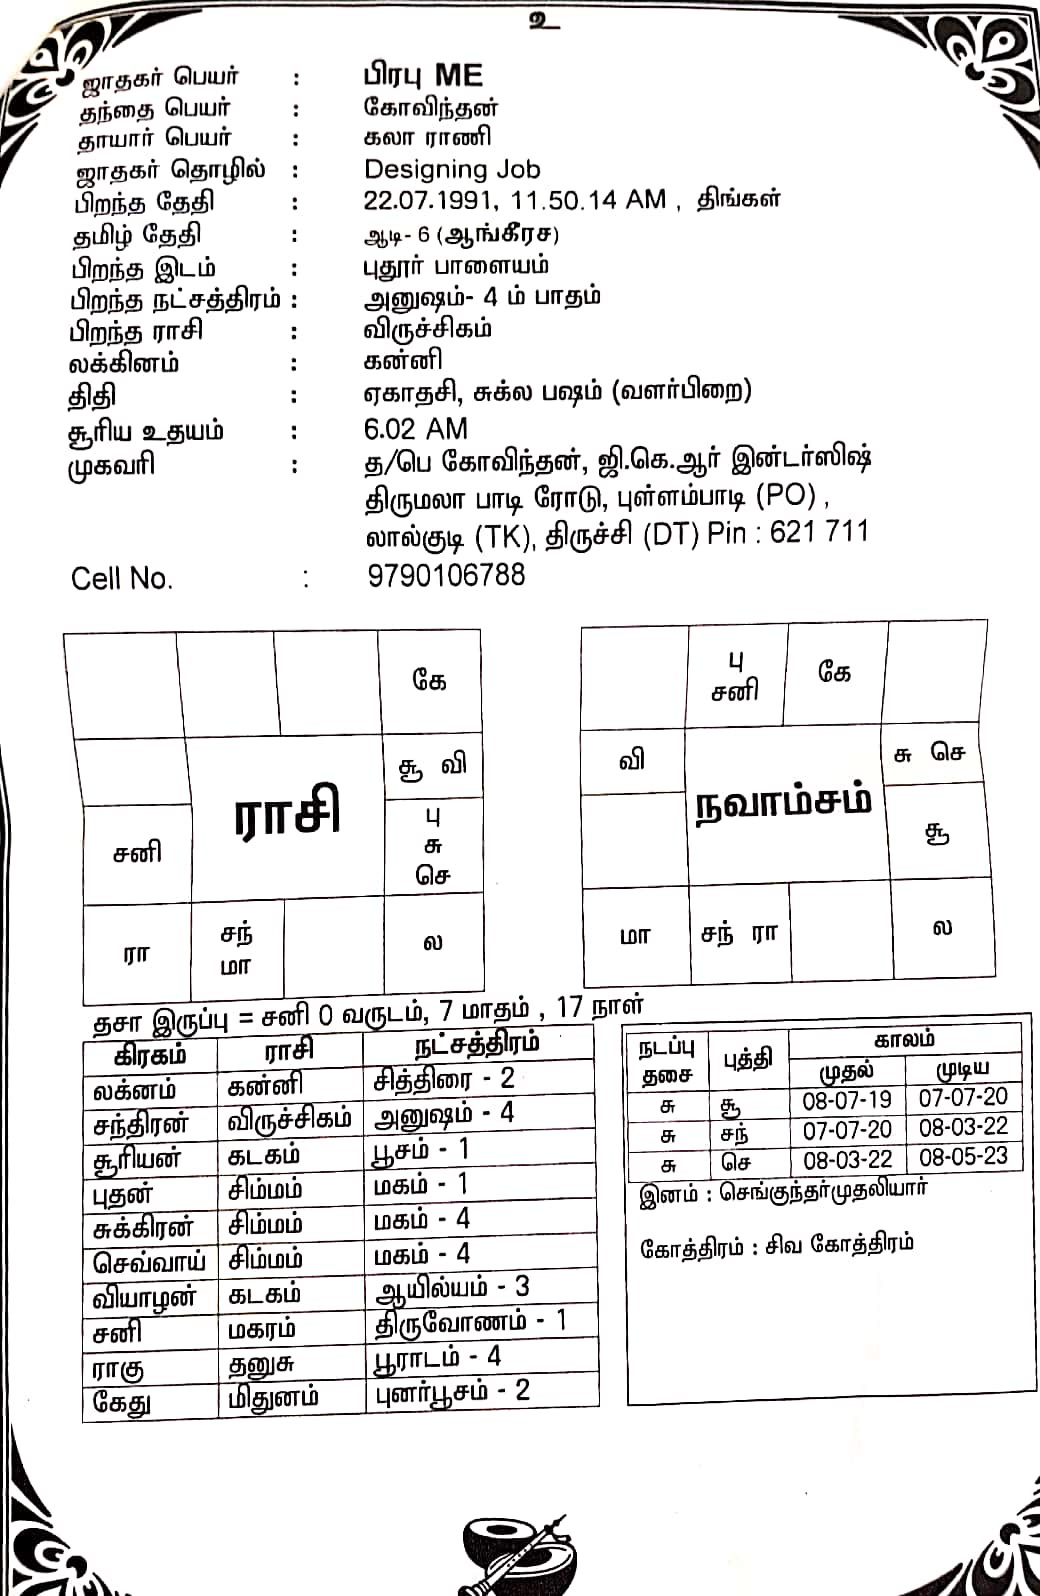 உ
ஜாதகர் பெயர் : பிரபு ME
தந்தை பெயர் : கோவிந்தன்
தாயார் பெயர் : கலா ராணி
ஜாதகர் தொழில் : Designing Job
பிறந்த தேதி : 22.07.1991, 11.50.14 AM , திங்கள்
தமிழ் தேதி : ஆடி- 6 (ஆங்கீரச)
பிறந்த இடம் : புதூர் பாளையம்
பிறந்த நட்சத்திரம் : அனுஷம்- 4 ம் பாதம்
பிறந்த ராசி : விருச்சிகம்
லக்கினம் : கன்னி
திதி : ஏகாதசி, சுக்ல பஷம் (வளர்பிறை)
சூரிய உதயம் : 6.02 AM
முகவரி : த/பெ கோவிந்தன், ஜி.கெ.ஆர் இன்டர்ஸிஷ்
திருமலா பாடி ரோடு, புள்ளம்பாடி (PO) ,
லால்குடி (TK), திருச்சி (DT) Pin : 621 711
Cell No. : 9790106788
கே
சூ வி
ராசி
சனி
பு
சு
செ
ரா
சந்
மா
ல
பு
சனி
கே
வி
சு செ
நவாம்சம்
சூ
மா
சந் ரா
ல
தசா இருப்பு = சனி 0 வருடம், 7 மாதம் , 17 நாள்
கிரகம் ராசி நட்சத்திரம்
லக்னம் கன்னி சித்திரை - 2
சந்திரன் விருச்சிகம் அனுஷம் - 4
சூரியன் கடகம் பூசம் - 1
புதன் சிம்மம் மகம் - 1
சுக்கிரன் சிம்மம் மகம் - 4
செவ்வாய் சிம்மம் மகம் - 4
வியாழன் கடகம் ஆயில்யம் - 3
சனி மகரம் திருவோணம் - 1
ராகு தனுசு பூராடம் - 4
கேது மிதுனம் புனர்பூசம் - 2
நடப்பு தசை புத்தி காலம்
முதல் முடிய
சு சூ 08-07-19 07-07-20
சு சந் 07-07-20 08-03-22
சு செ 08-03-22 08-05-23
இனம் : செங்குந்தர்முதலியார்
கோத்திரம் : சிவ கோத்திரம்